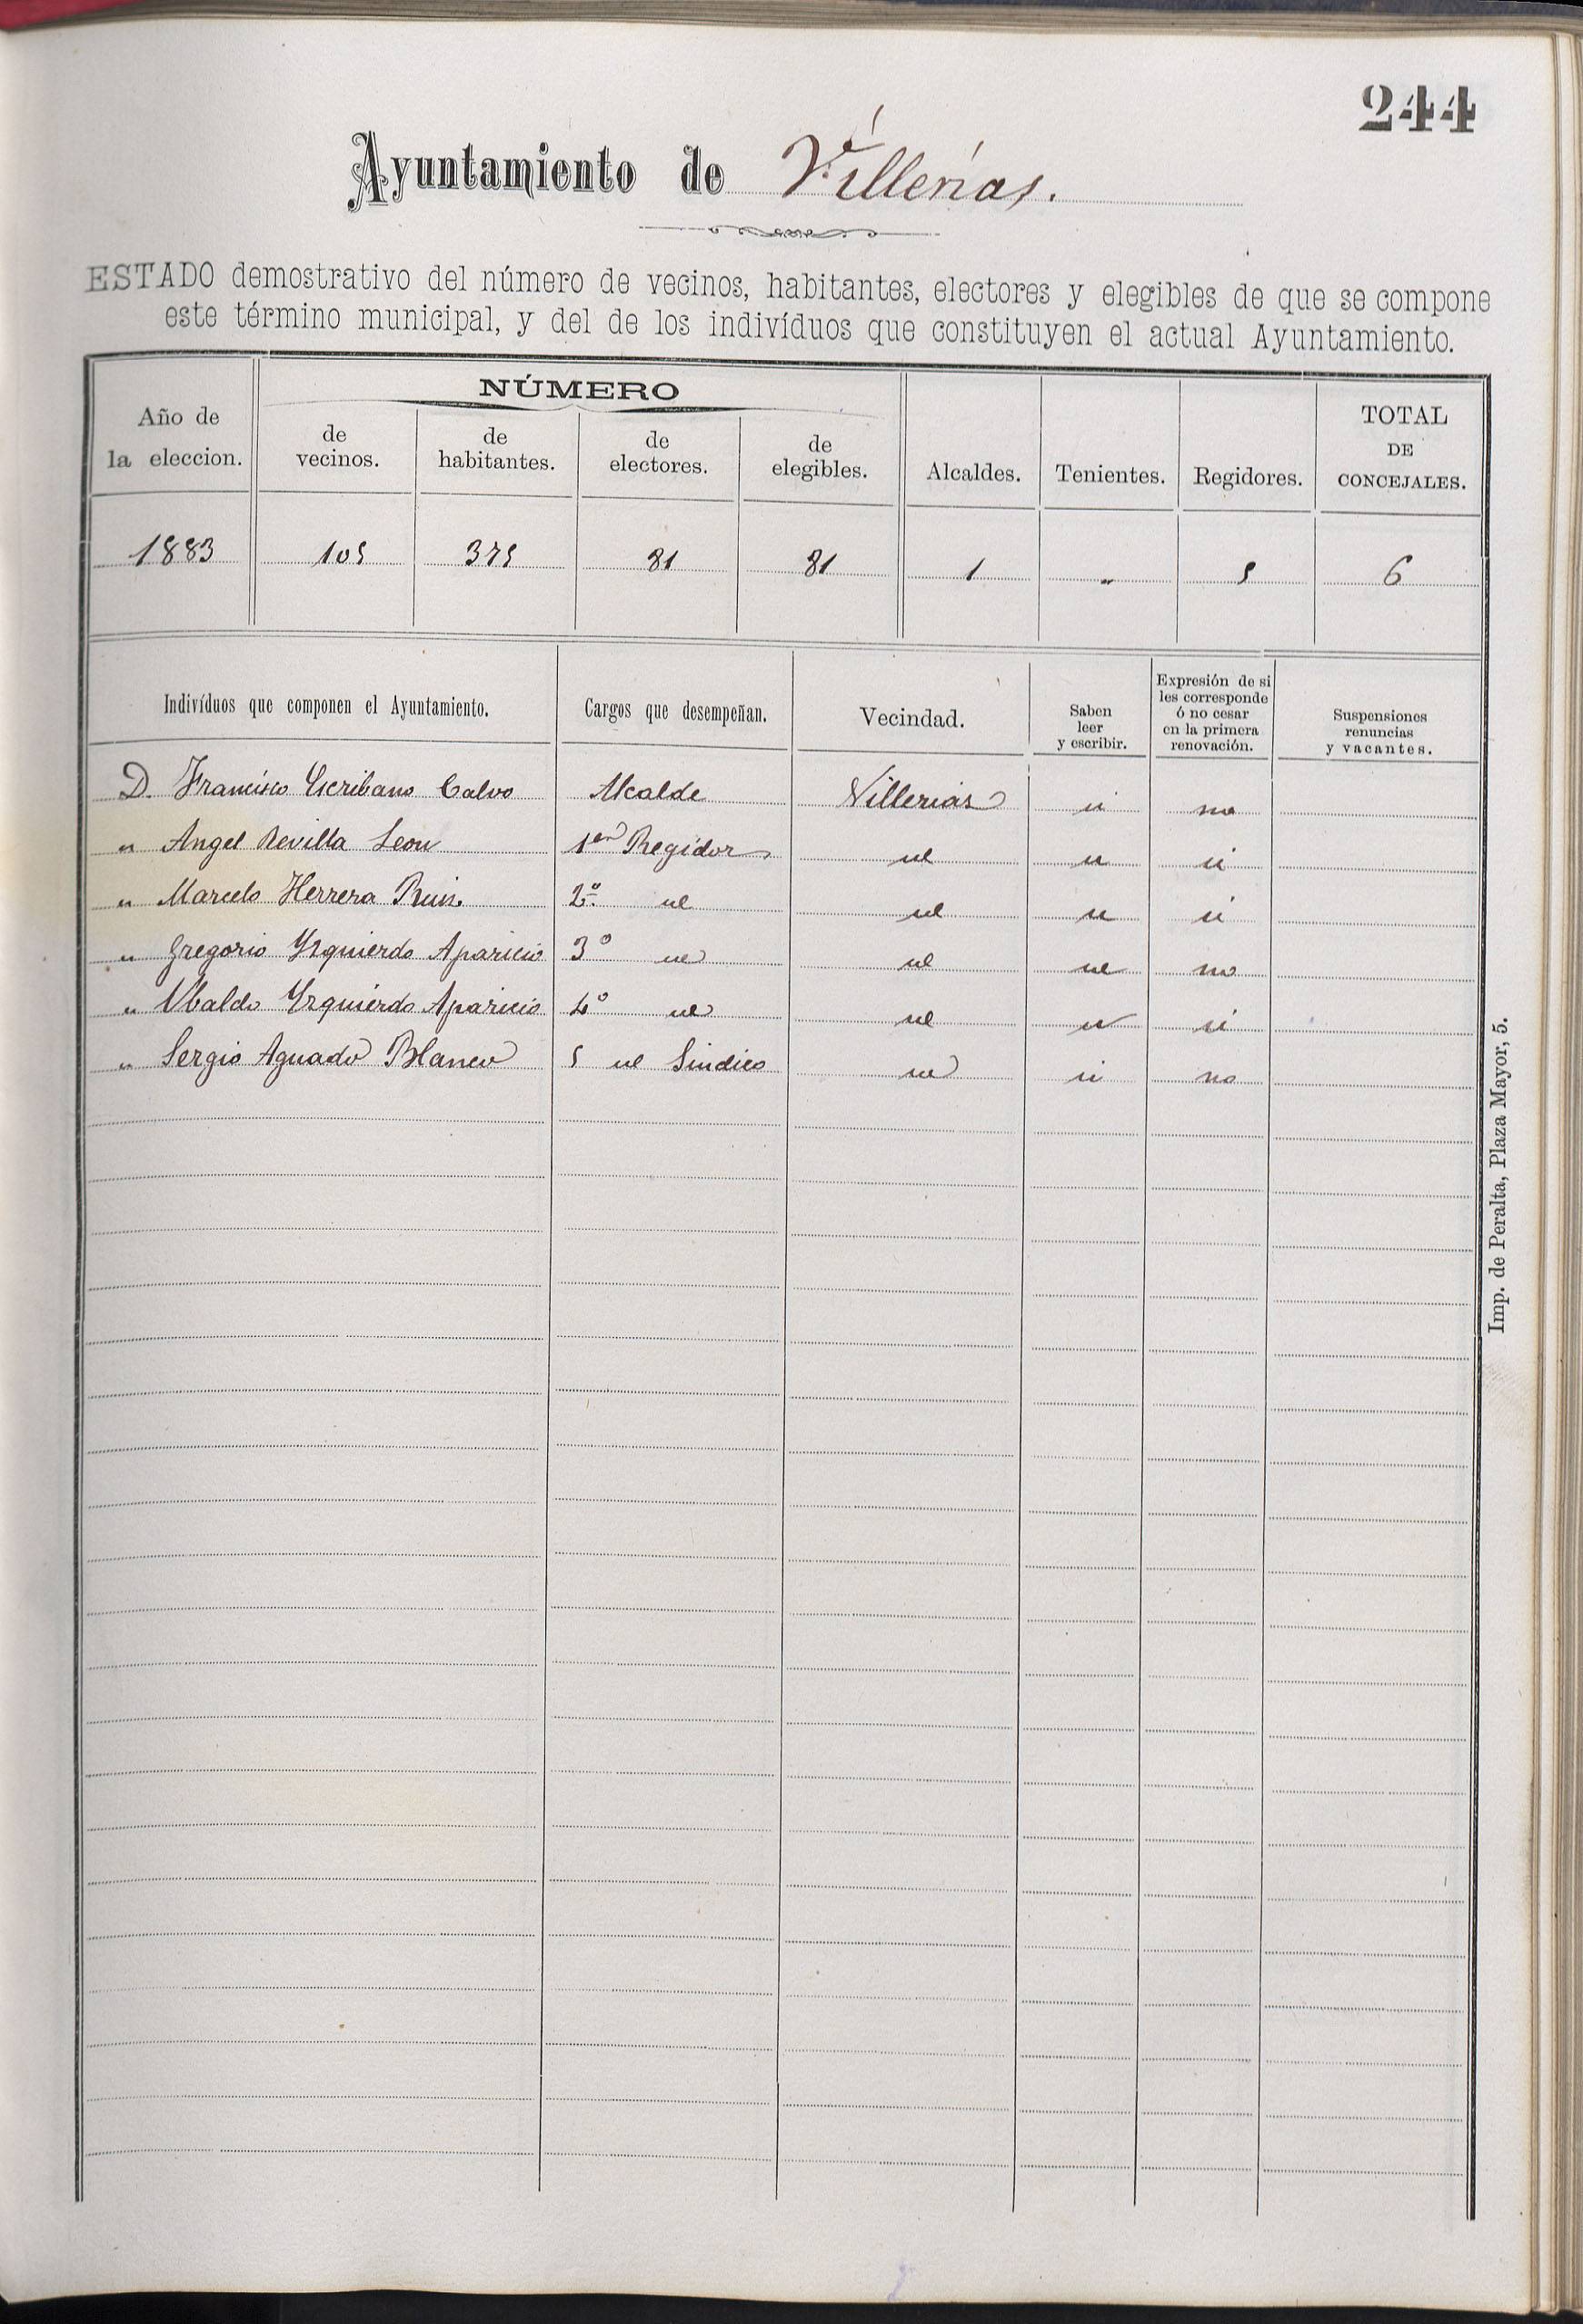 244
Ayuntamiento de Villerías.
ESTADO demostrativo del número de vecinos, habitantes, electores y elegibles de que se compone
este término municipal, y del de los indivíduos que constituyen el actual Ayuntamiento.
Año de la eleccion. NÚMERO de vecinos. de habitantes. de electores. de elegibles. Alcaldes. Tenientes. Regidores. TOTAL DE CONCEJALES.
1883 105 375 81 81 1 " 5 6
Indivíduos que componen el Ayuntamiento. Cargos que desempeñan. Vecindad. Saben leer y escribir. Expresión de si les corresponde ó no cesar en la primera renovación. Suspensiones renuncias y vacantes.
D. Francisco Escribano Calvo Alcalde Villerias si no
" Angel Revilla Leon 1er Regidor id si si
" Marcelo Herrera Ruiz 2º id id si si
" Gregorio Yzquierdo Aparicio 3º id id id no
" Ubaldo Yzquierdo Aparicio 4º id id si si
" Sergio Aguado Blanco 5 id Sindico id si no
Imp. de Peralta, Plaza Mayor, 5.